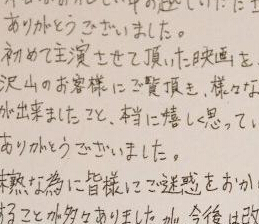 ありがとうございました。
初めて主演させて頂いた映画を、
沢山のお客様にご覧頂き、様々な
が出来ましたこと、本当に嬉しく思ってい
ありがとうございました。
未熟な為に皆様にご迷惑をおか
することが多々ありましたが、今後は改